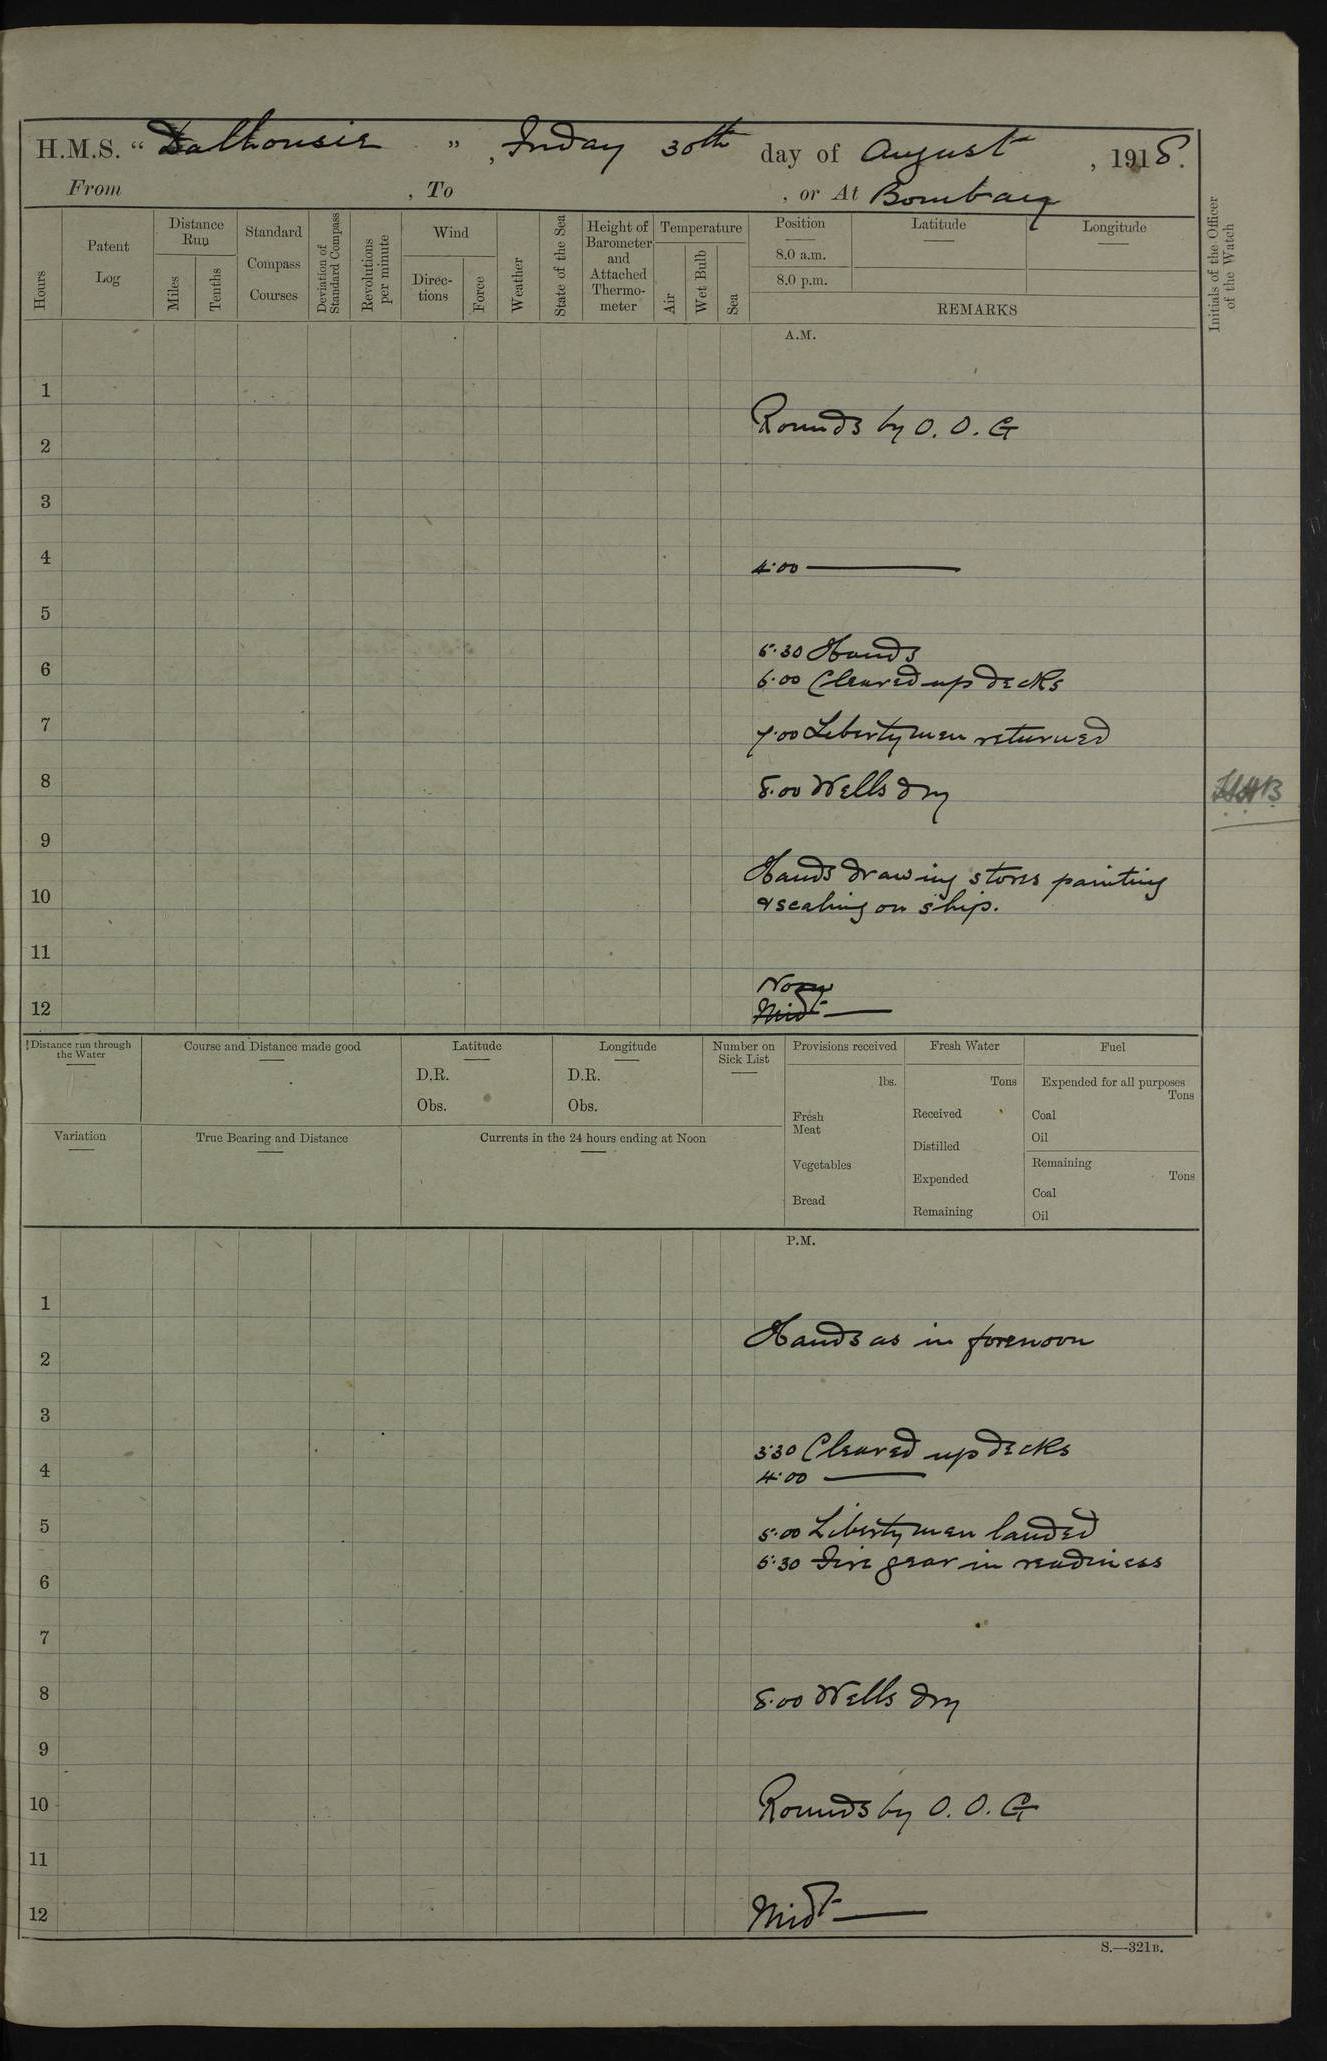 H.M.S. “ Dalhousie ”, Friday 30th day of August, 1918.
From , To , or At Bombay
Hours
Patent Log
Distance Run
Miles
Tenths
Standard Compass Courses
Deviation of Standard Compass
Revolutions per minute
Wind
Direc-tions
Force
Weather
State of the Sea
Height of Barometer and Attached Thermo-meter
Temperature
Air
Wet Bulb
Sea
Position
8.0 a.m.
8.0 p.m.
Latitude
Longitude
REMARKS
Initials of the Officer of the Watch
A.M.
1
Rounds by O. O. G
2
3
4
4.00 ———
5
5.30 Hands
6
6.00 Cleared up decks
7
7.00 Liberty men returned
8
8.00 Wells dry
9
Hands drawing stores painting
10
& scaling on ship.
11
Noon
12
Midt ———
Distance run through the Water
Course and Distance made good
Latitude
D.R.
Obs.
Longitude
D.R.
Obs.
Number on Sick List
Provisions received
lbs.
Fresh Meat
Vegetables
Bread
Fresh Water
Tons
Received
Distilled
Expended
Remaining
Fuel
Expended for all purposes
Tons
Coal
Oil
Remaining
Tons
Coal
Oil
Variation
True Bearing and Distance
Currents in the 24 hours ending at Noon
P.M.
1
Hands as in forenoon
2
3
3.30 Cleared up decks
4
4.00 ———
5
5.00 Liberty men landed
5.30 Fire gear in readiness
6
7
8
8.00 Wells dry
9
10
Rounds by O. O. G
11
12
Midt ———
S.—321B.